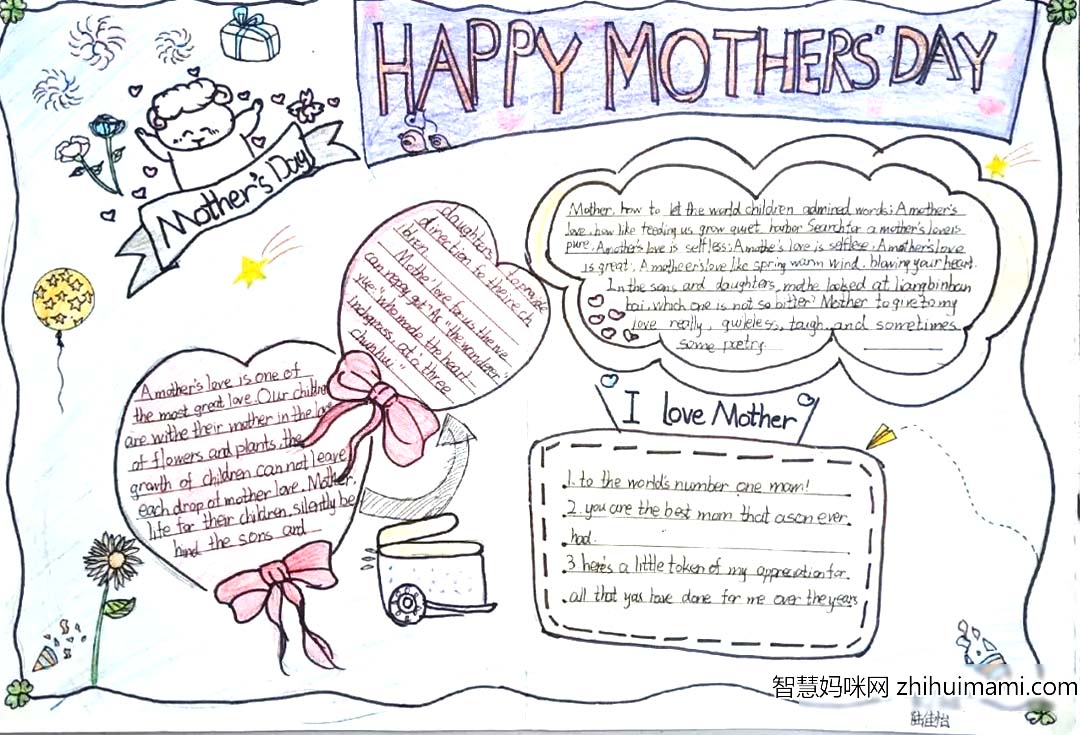 HAPPY MOTHERS' DAY
Mother's Day!
Mother, how to let the world children admired words; A mother's
love, how like feeding us grow quiet harbor Search for a mother's lovers
pure. A mother's love is selfless; A mothe's love is selflese; A mother's love
is great; A motheer's love like spring warm wind, blowing your heart.
In the sons and daughters, mothe looked at liangbinban
bai, which one is not so bitter? Mother to give to my
love really, guileless, tough, and sometimes
some pretry.
daughters, to provide
direction for their ch
ibren
Mother love for us then we
can repay get "As "the wanderer"
yue: "who made the heart
inchgrass, at a three
chunhui."
A mother's love is one of
the most great love. Our children
are withe their mother in the love
of flowers and plants, the
growth of children can not leave
each drop of mother love. Mother,
life for their children, silently be
hind the sons and
I love Mother
1. to the world's number one mom!
2. you are the best mom that a son ever
had.
3 here's a little token of my appreciation for
all that yas have done for me over the years
智慧妈咪网 zhihuimami.com
陆佳怡